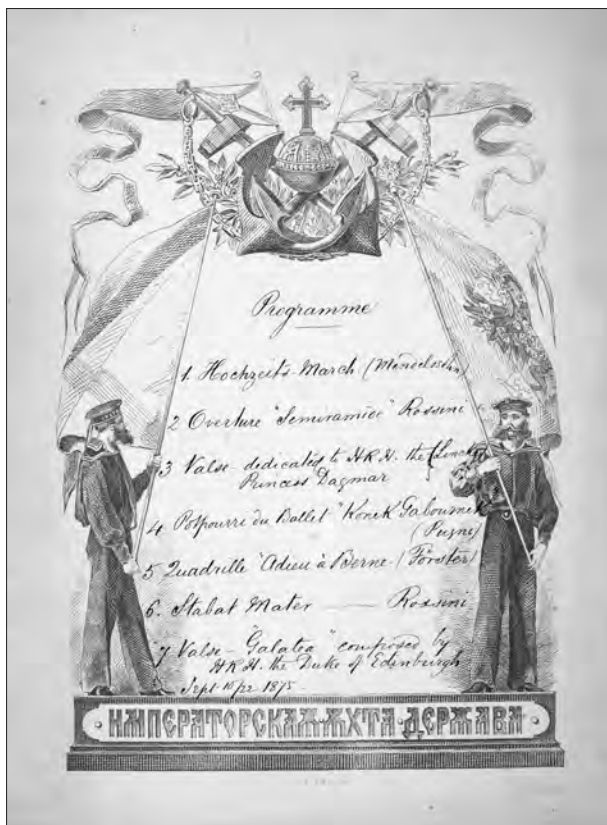 Programme
1. Hochzeits-March (Mendelssohn)
2 Overture "Semiramide" Rossini
3 Valse - dedicated to H.R.H. the
Princess Dagmar
4 Potpourri du Ballet "Konek Gabournek
(Pugni)
5 Quadrille "Adieu à Berne" (Förster)
6. Stabat Mater — Rossini
7 Valse - "Galatea" composed by
H.R.H. the Duke of Edinburgh
Sept 10/22 1875.
ИМПЕРАТОРСКАЯ·ЯХТА·ДЕРЖАВА